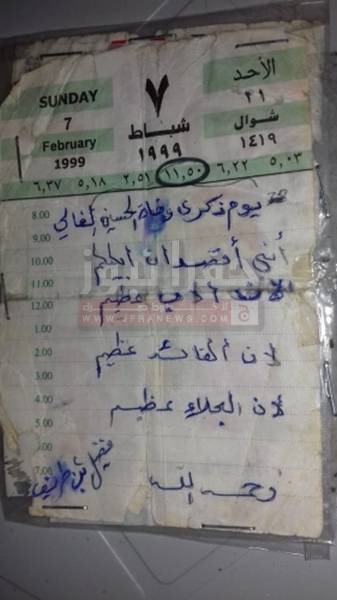 SUNDAY
7
February
1999
٧
شباط
١٩٩٩
الأحد
٢١
شوال
١٤١٩
٦,٣٧ ٥,١٨ ٢,٥١ ١١,٥٠ ٦,٢٢ ٥,٠٣
8.00
9.00
10.00
11.00
12.00
1.00
2.00
3.00
4.00
5.00
6.00
7.00
يوم ذكرى وفاة الحسين الغالي
أنني أفتقد ان ابكيكم
لان عظيم
لان الفائد عظيم
لان البلاء عظيم
رحمه الله
جفرا نيوز
WWW.JFRANEWS.COM